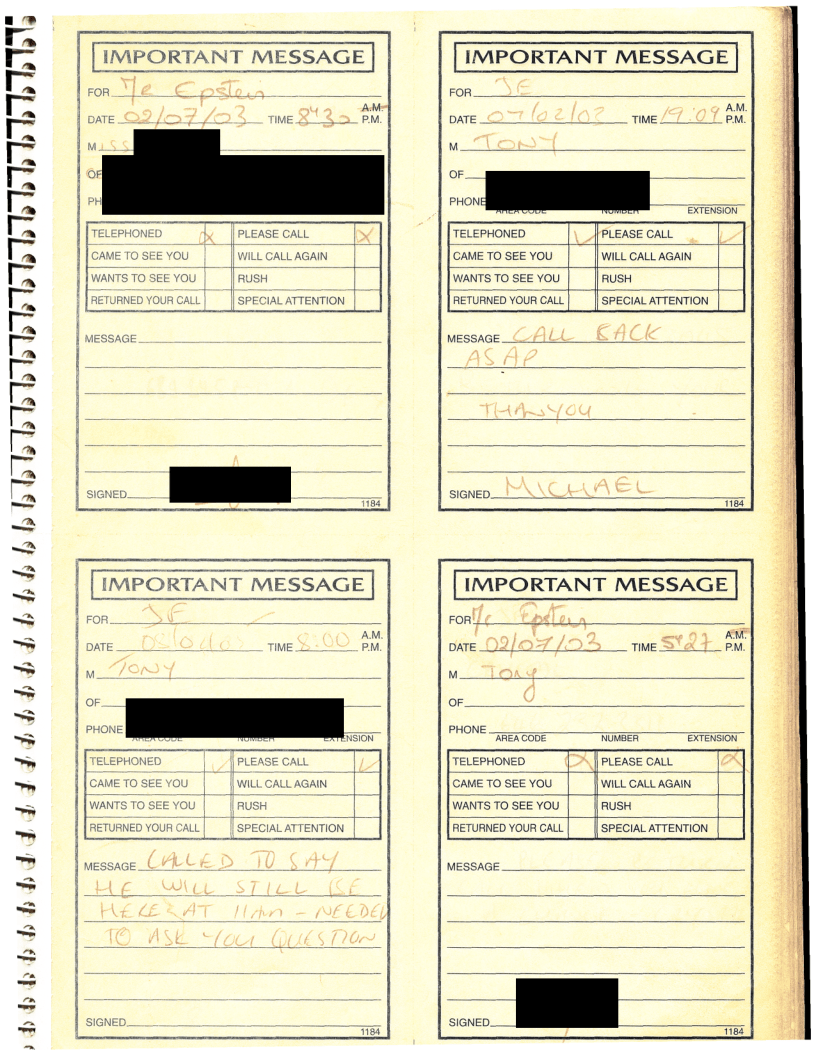 IMPORTANT MESSAGE
FOR Mr Epstein
DATE 02/07/03 TIME 8:30 A.M. P.M.
MISS
OF
PH
TELEPHONED X PLEASE CALL X
CAME TO SEE YOU WILL CALL AGAIN
WANTS TO SEE YOU RUSH
RETURNED YOUR CALL SPECIAL ATTENTION
MESSAGE
SIGNED
1184
IMPORTANT MESSAGE
FOR JE
DATE 07/02/03 TIME 19:09 A.M. P.M.
M TONY
OF
PHONE
AREA CODE NUMBER EXTENSION
TELEPHONED ✓ PLEASE CALL ✓
CAME TO SEE YOU WILL CALL AGAIN
WANTS TO SEE YOU RUSH
RETURNED YOUR CALL SPECIAL ATTENTION
MESSAGE CALL BACK
ASAP
THANYOU
SIGNED MICHAEL
1184
IMPORTANT MESSAGE
FOR JE
DATE TIME 8:00 A.M. P.M.
M TONY
OF
PHONE
AREA CODE NUMBER EXTENSION
TELEPHONED ✓ PLEASE CALL ✓
CAME TO SEE YOU WILL CALL AGAIN
WANTS TO SEE YOU RUSH
RETURNED YOUR CALL SPECIAL ATTENTION
MESSAGE CALLED TO SAY
HE WILL STILL BE
HERE AT 11AM - NEEDED
TO ASK YOU QUESTION
SIGNED
1184
IMPORTANT MESSAGE
FOR Mr Epstein
DATE 02/07/03 TIME 5:27 A.M. P.M.
M Tony
OF
PHONE
AREA CODE NUMBER EXTENSION
TELEPHONED X PLEASE CALL X
CAME TO SEE YOU WILL CALL AGAIN
WANTS TO SEE YOU RUSH
RETURNED YOUR CALL SPECIAL ATTENTION
MESSAGE
SIGNED
1184